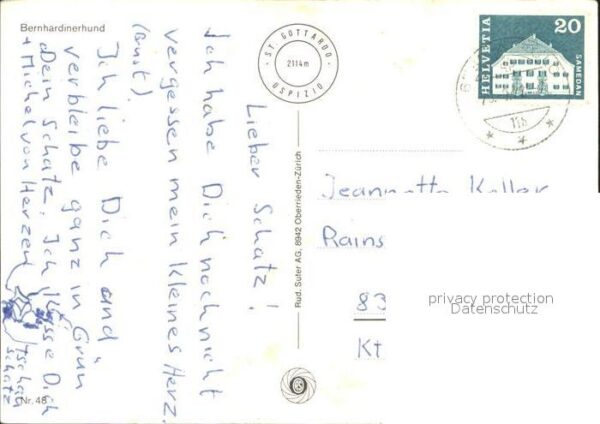 Bernhardinerhund
Lieber Schatz!
Ich habe Dich noch nicht
vergessen mein kleines Herz.
(Brust).
Ich liebe Dich und
verbleibe ganz in Grün
Dein Schatz. Ich Küsse Dich
+ Michel von Herzen
Tschau
Schatz
Nr. 48
ST. GOTTARDO
2114m
OSPIZIO
Rud. Suter AG, 8942 Oberrieden-Zürich
RS
HELVETIA
20
SAMEDAN
Jeannette Keller
Rains
83
Kt
privacy protection
Datenschutz